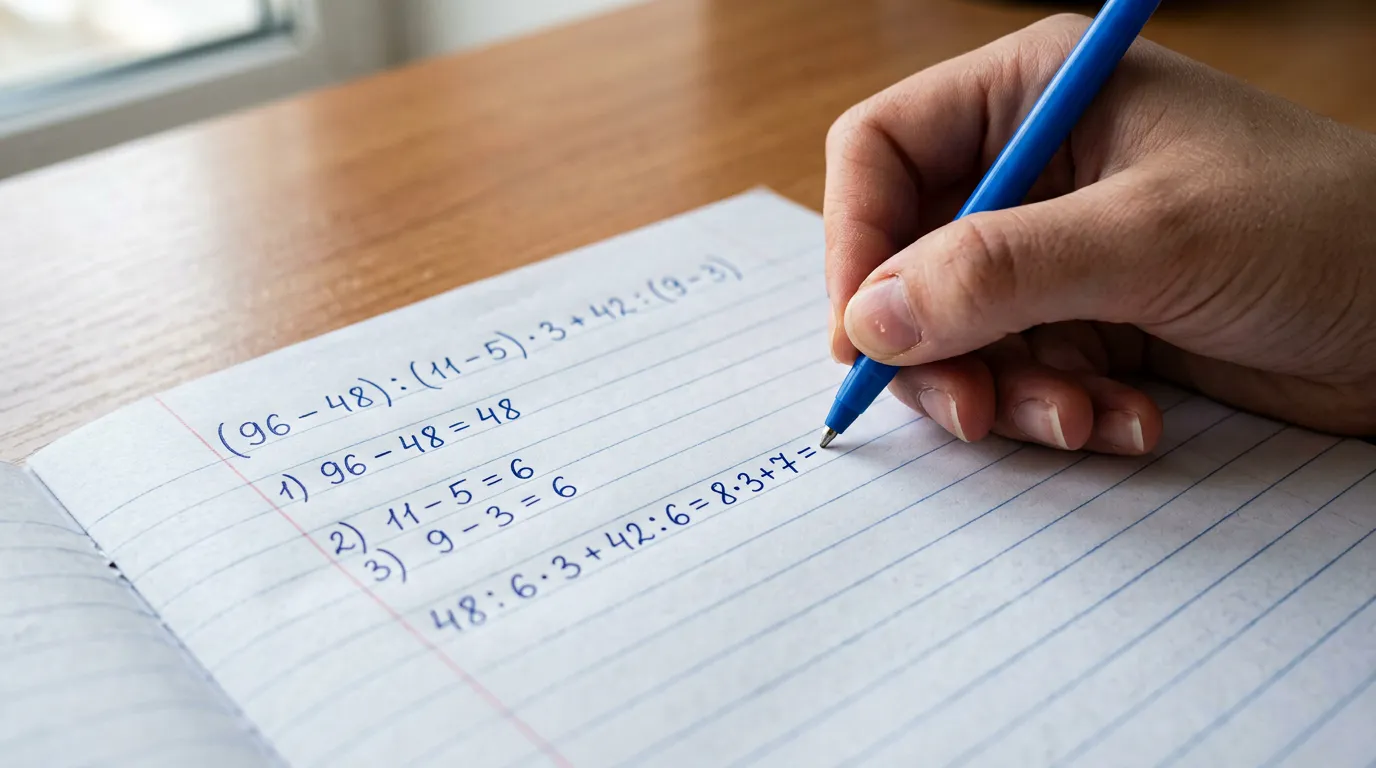 (96 – 48) : (11 – 5) · 3 + 42 : (9 – 3)
1) 96 – 48 = 48
2) 11 – 5 = 6
3) 9 – 3 = 6
48 : 6 · 3 + 42 : 6 = 8 · 3 + 7 =